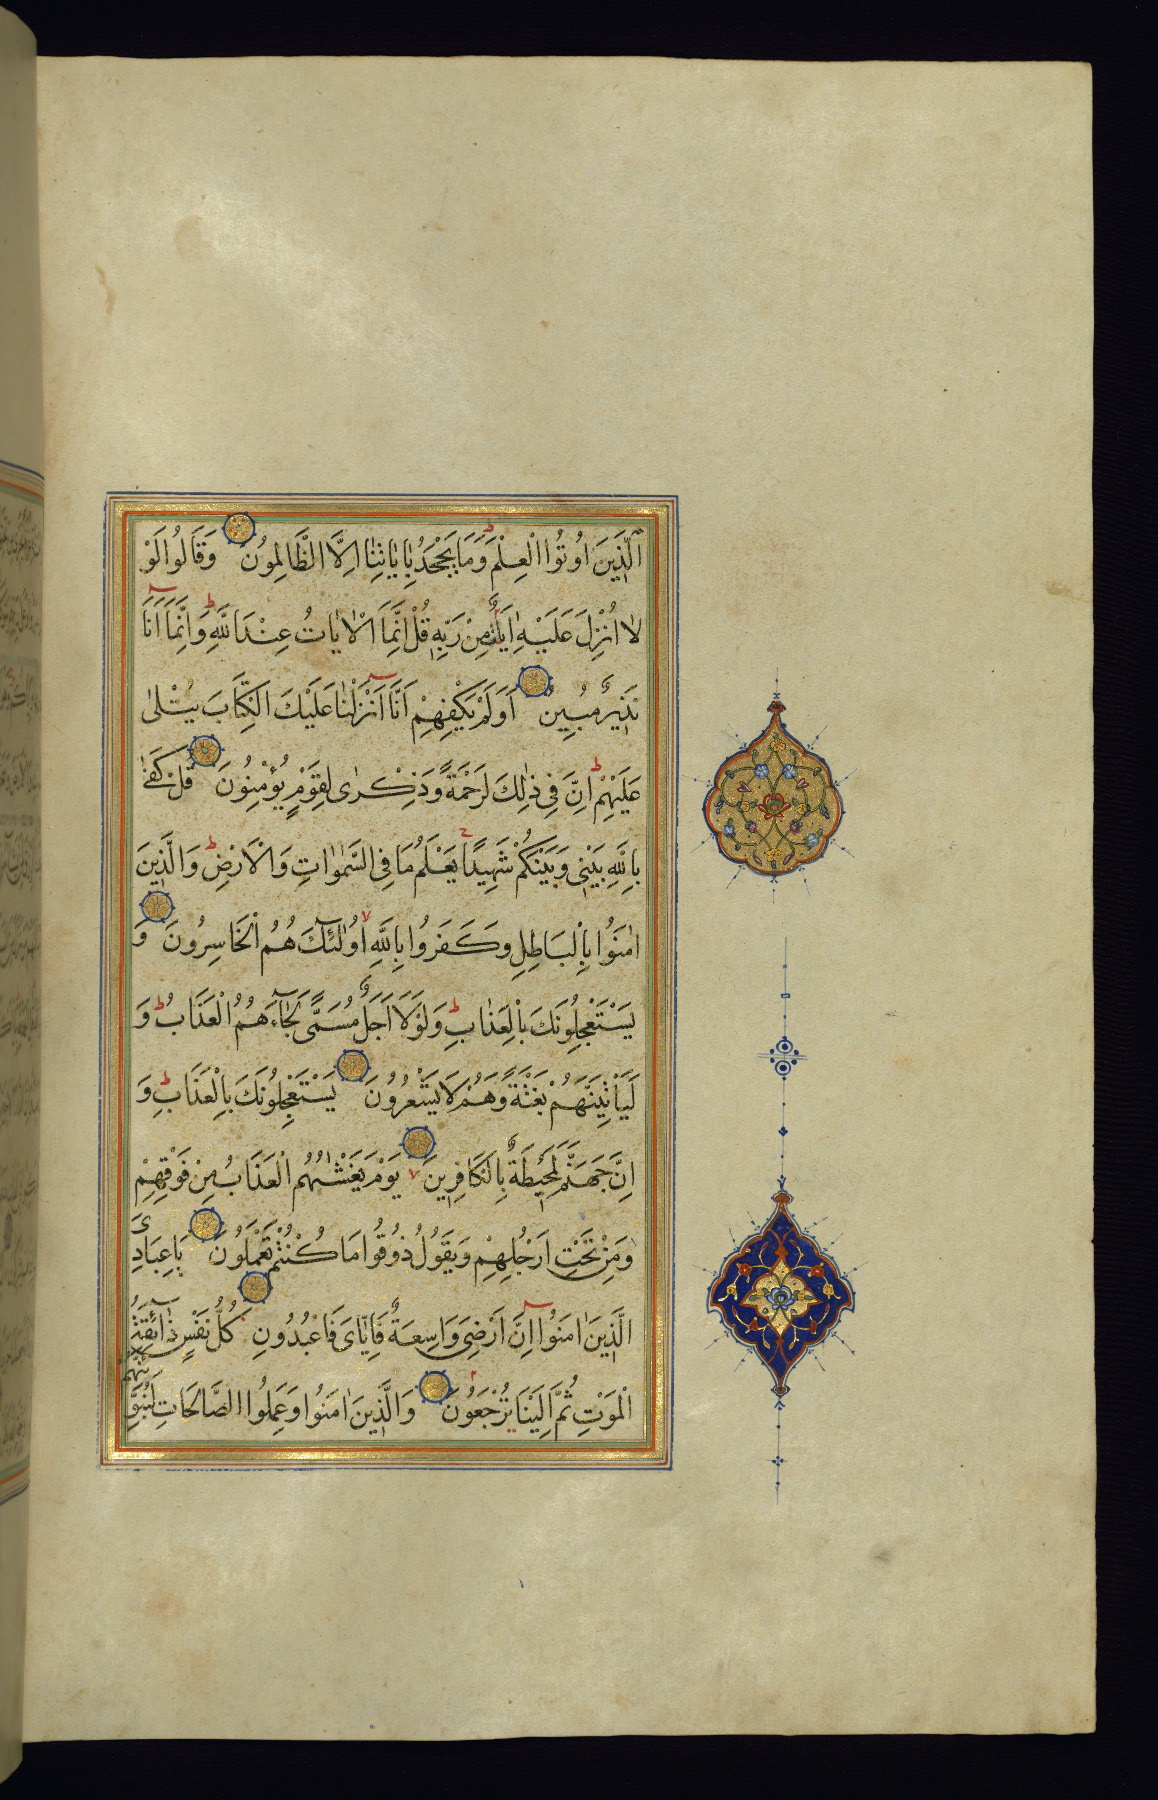 الَّذِينَ اُوتُوا الْعِلْمَ وَمَا يَجْحَدُ بِاٰيَاتِنَا اِلَّا الظَّالِمُونَ وَقَالُوا لَوْ
لَا اُنْزِلَ عَلَيْهِ اٰيَةٌ مِنْ رَبِّهِ قُلْ اِنَّمَا الْاٰيَاتُ عِنْدَ اللّٰهِ وَاِنَّمَا اَنَا
نَذِيرٌ مُبِينٌ اَوَلَمْ يَكْفِهِمْ اَنَّا اَنْزَلْنَا عَلَيْكَ الْكِتَابَ يُتْلٰى
عَلَيْهِمْ اِنَّ فِي ذٰلِكَ لَرَحْمَةً وَذِكْرٰى لِقَوْمٍ يُؤْمِنُونَ قُلْ كَفٰى
بِاللّٰهِ بَيْنِي وَبَيْنَكُمْ شَهِيدًا يَعْلَمُ مَا فِي السَّمٰوَاتِ وَالْاَرْضِ وَالَّذِينَ
اٰمَنُوا بِالْبَاطِلِ وَكَفَرُوا بِاللّٰهِ اُولٰئِكَ هُمُ الْخَاسِرُونَ وَ
يَسْتَعْجِلُونَكَ بِالْعَذَابِ وَلَوْلَا اَجَلٌ مُسَمًّى لَجَاءَهُمُ الْعَذَابُ وَ
لَيَأْتِيَنَّهُمْ بَغْتَةً وَهُمْ لَا يَشْعُرُونَ يَسْتَعْجِلُونَكَ بِالْعَذَابِ وَ
اِنَّ جَهَنَّمَ لَمُحِيطَةٌ بِالْكَافِرِينَ يَوْمَ يَغْشٰيهُمُ الْعَذَابُ مِنْ فَوْقِهِمْ
وَمِنْ تَحْتِ اَرْجُلِهِمْ وَيَقُولُ ذُوقُوا مَا كُنْتُمْ تَعْمَلُونَ يَا عِبَادِيَ
الَّذِينَ اٰمَنُوا اِنَّ اَرْضِي وَاسِعَةٌ فَاِيَّايَ فَاعْبُدُونِ كُلُّ نَفْسٍ ذَائِقَةُ
الْمَوْتِ ثُمَّ اِلَيْنَا تُرْجَعُونَ وَالَّذِينَ اٰمَنُوا وَعَمِلُوا الصَّالِحَاتِ لَنُبَوِّئَنَّهُمْ